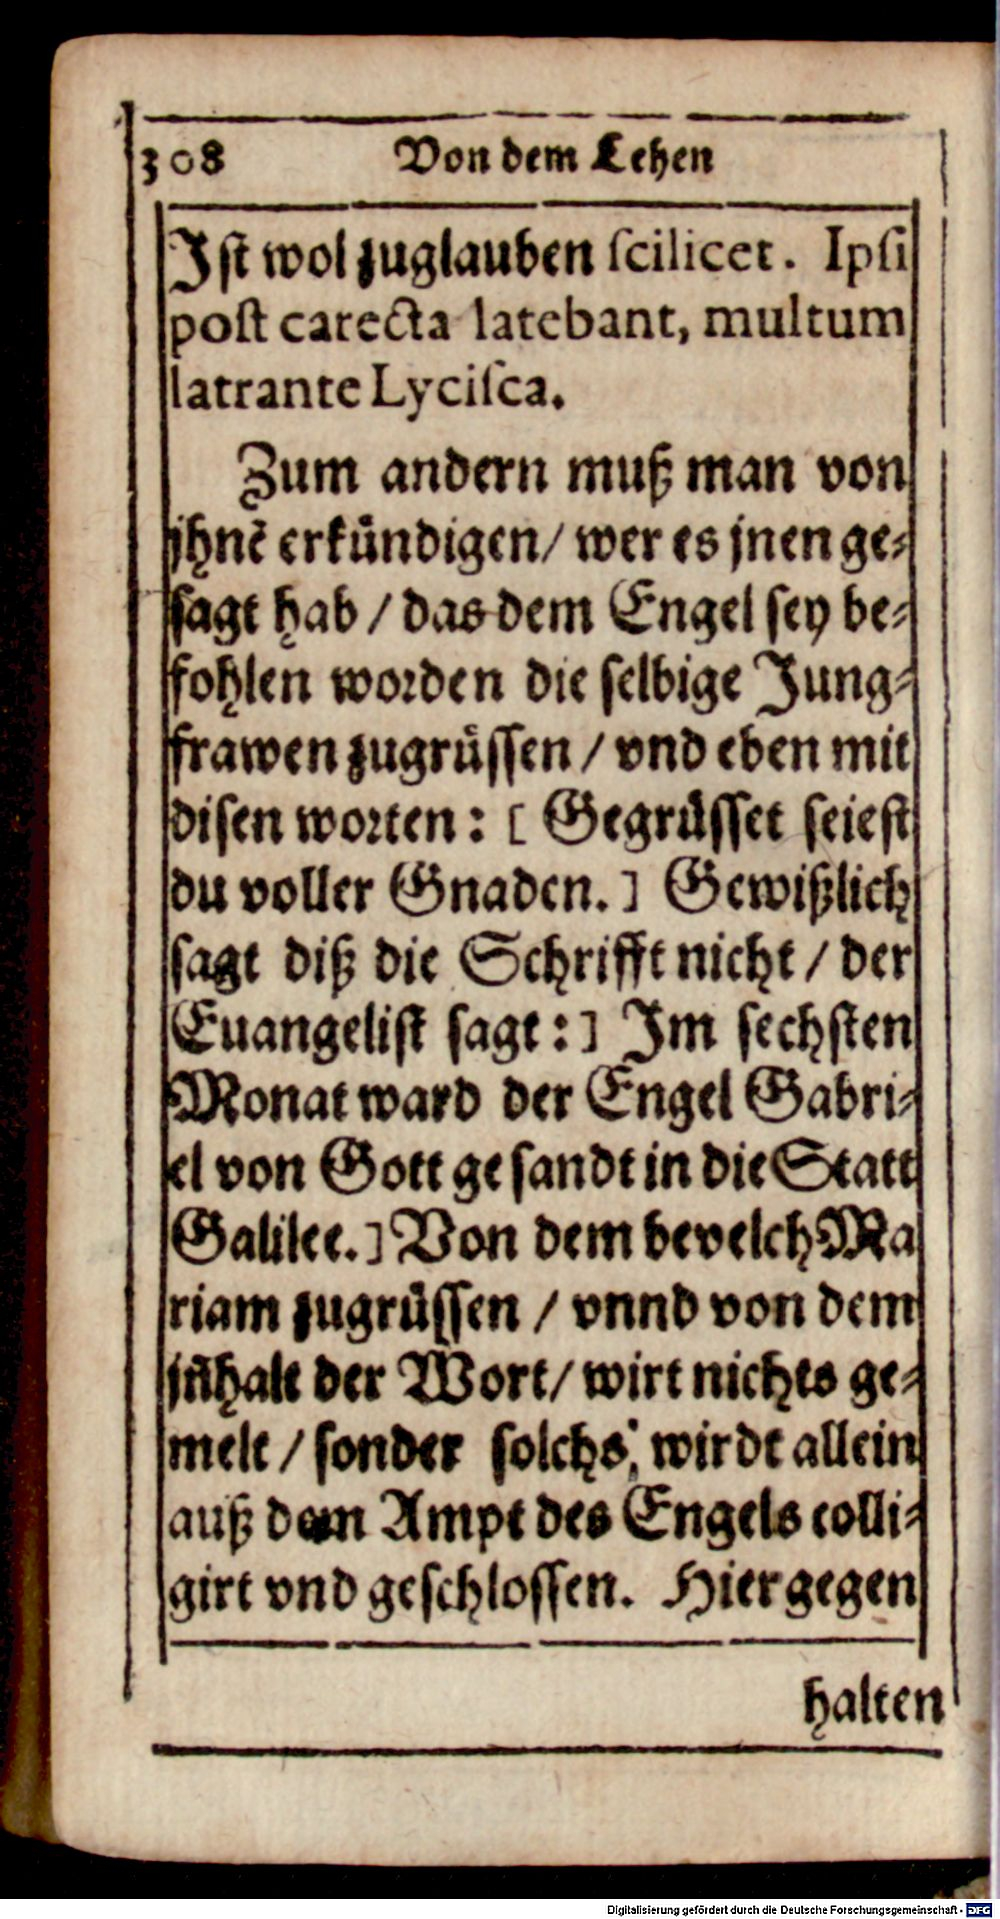 308 Von dem Lehen
Ist wol zuglauben scilicet. Ipsi
post carecta latebant, multum
latrante Lycisca.
Zum andern muß man von
jhnẽ erkůndigen/ wer es jnen ge-
sagt hab / das dem Engel sey be-
fohlen worden die selbige Jung-
frawen zugrůssen / vnd eben mit
disen worten: [ Gegrůsset seiest
du voller Gnaden.] Gewißlich
sagt diß die Schrifft nicht / der
Euangelist sagt:] Im sechsten
Monat ward der Engel Gabri-
el von Gott gesandt in die Statt
Galilee.] Von dem bevelch Ma
riam zugrůssen / vnnd von dem
jñhalt der Wort/ wirt nichts ge-
melt / sonder solchs, wirdt allein
auß dem Ampt des Engels colli-
girt vnd geschlossen. Hiergegen
halten
Digitalisierung gefördert durch die Deutsche Forschungsgemeinschaft - DFG